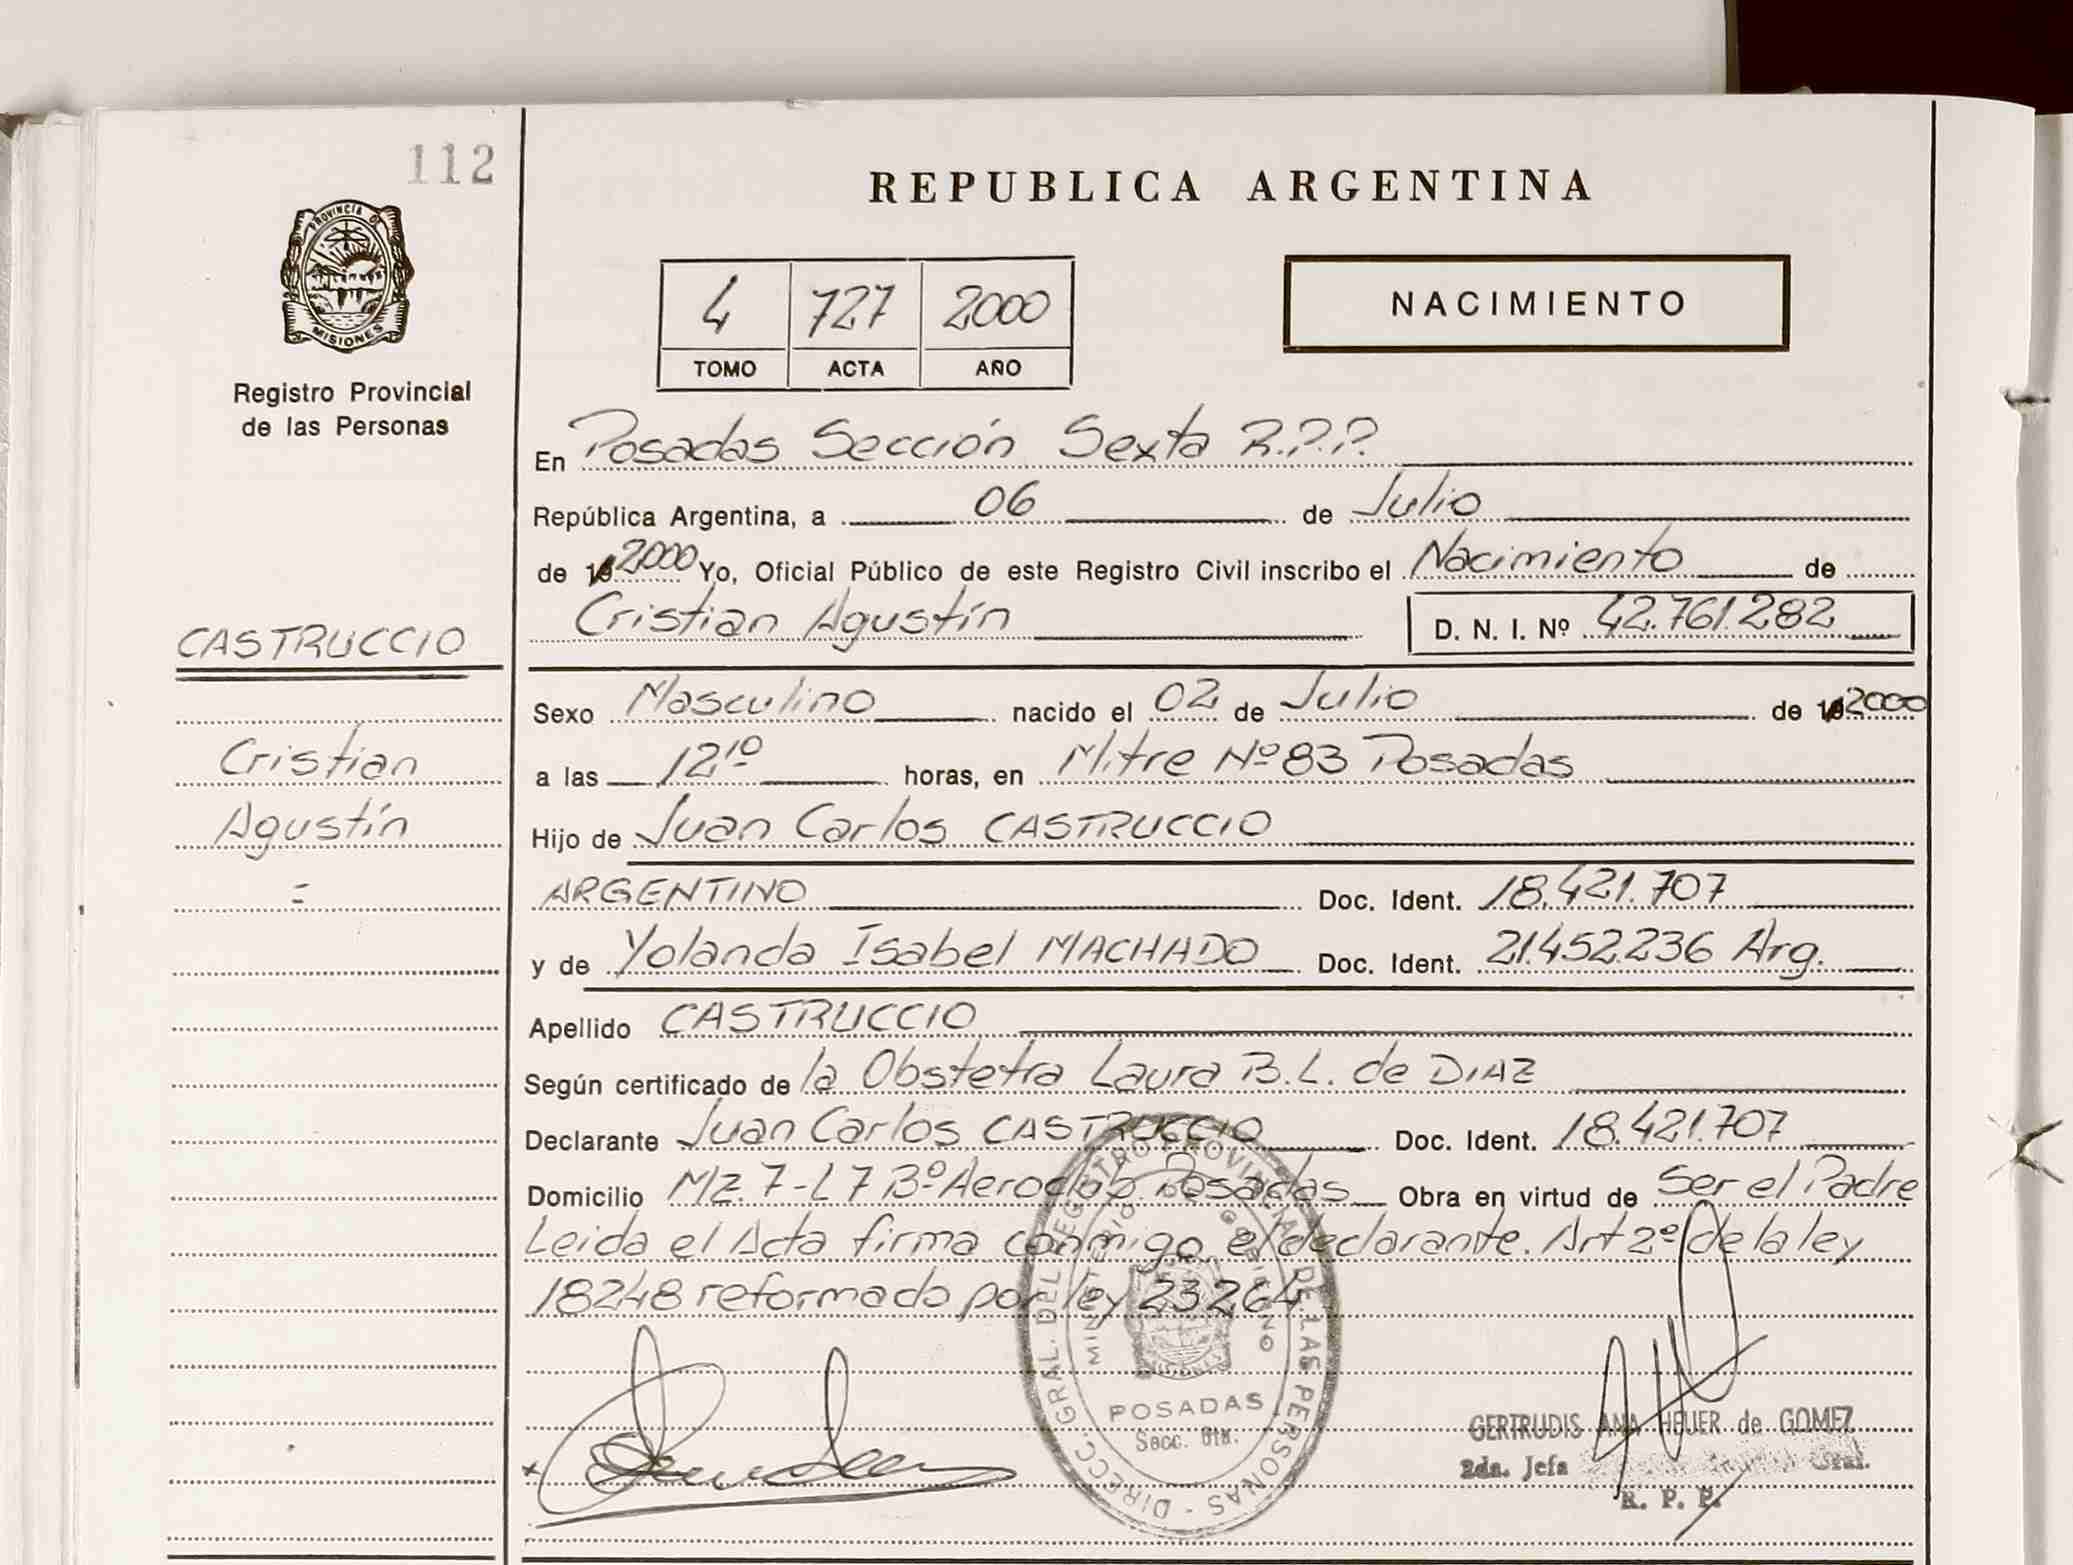 112
PROVINCIA DE
MISIONES
Registro Provincial
de las Personas
CASTRUCCIO
Cristian
Agustín
=
REPUBLICA ARGENTINA
4 727 2000
TOMO ACTA AÑO
NACIMIENTO
En Posadas Sección Sexta R.P.P.
República Argentina, a 06 de Julio
de 19 2000 Yo, Oficial Público de este Registro Civil inscribo el Nacimiento de
Cristian Agustín D. N. I. Nº 42.761.282
Sexo Masculino nacido el 02 de Julio de 19 2000
a las 12¹⁰ horas, en Mitre Nº 83 Posadas
Hijo de Juan Carlos CASTRUCCIO
ARGENTINO Doc. Ident. 18.421.707
y de Yolanda Isabel MACHADO Doc. Ident. 21.452.236 Arg.
Apellido CASTRUCCIO
Según certificado de la Obstetra Laura B. L. de DIAZ
Declarante Juan Carlos CASTRUCCIO Doc. Ident. 18.421.707
Domicilio Mz. 7-L 7 Bº Aeroclub Posadas Obra en virtud de Ser el Padre
Leida el Acta firma conmigo el declarante. Art 2º de la ley
18248 reformado por ley 23264
DIRECC. GRAL. DEL REGISTRO PROVINCIAL DE LAS PERSONAS
MINISTERIO DE GOBIERNO
MISIONES
POSADAS
Secc. 6ta.
GERTRUDIS ANA HEUER de GOMEZ
2da. Jefa Gral.
R. P. P.